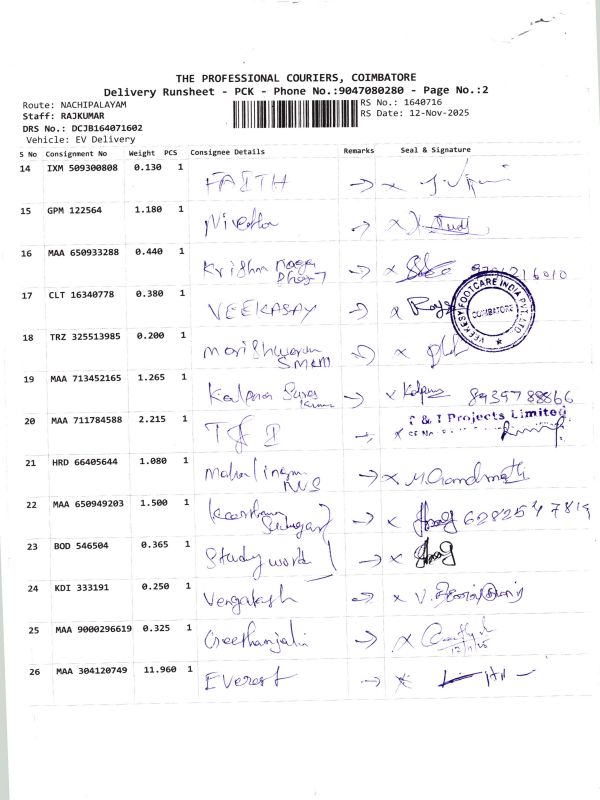 THE PROFESSIONAL COURIERS, COIMBATORE
Delivery Runsheet - PCK - Phone No.:9047080280 - Page No.:2
Route: NACHIPALAYAM RS No.: 1640716
Staff: RAJKUMAR RS Date: 12-Nov-2025
DRS No.: DCJB164071602
Vehicle: EV Delivery
S No Consignment No Weight PCS Consignee Details Remarks Seal & Signature
14 IXM 509300808 0.130 1 FAITH → x
15 GPM 122564 1.180 1 Nivetha → x
16 MAA 650933288 0.440 1 Krishna → x
17 CLT 16340778 0.380 1 VEEKASAY → x
VEEKESY FOOTCARE INDIA PVT. LTD.
COIMBATORE
18 TRZ 325513985 0.200 1 → x
SMKM
19 MAA 713452165 1.265 1 Kalpana → x Kalpana 8939788866
20 MAA 711784588 2.215 1 → x
Projects Limited
21 HRD 66405644 1.080 1 Mahalingam → x
22 MAA 650949203 1.500 1 → x 6282547819
23 BOD 546504 0.365 1 Studyword → x
24 KDI 333191 0.250 1 Vengatesh → x V.
25 MAA 9000296619 0.325 1 Geethanjali → x
12/11/25
26 MAA 304120749 11.960 1 Everest → x